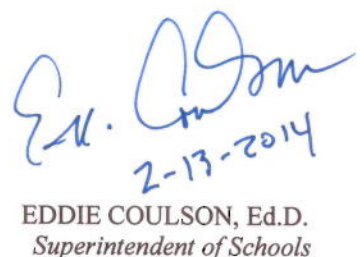 Ed. Coulson
2-13-2014
EDDIE COULSON, Ed.D.
Superintendent of Schools